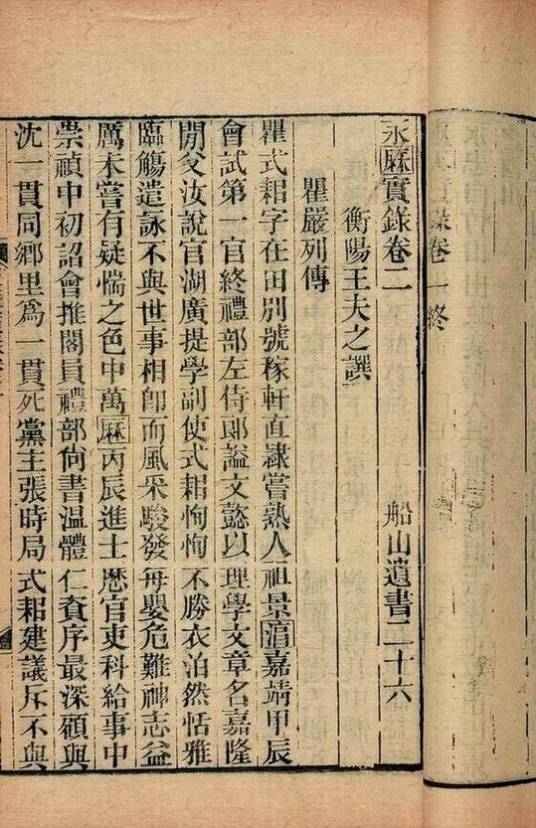 錄卷一終
永厤實錄卷二 船山遺書二十六
衡陽王夫之譔
瞿嚴列傳
瞿式耜字在田別號稼軒直隷嘗熟人祖景湻嘉靖甲辰
會試第一官終禮部左侍郎謚文懿以理學文章名嘉隆
閒父汝說官湖廣提學副使式耜恂恂不勝衣泊然恬雅
臨觴遣詠不與世事相卽而風采駿發每嬰危難神志益
厲未嘗有疑惴之色中萬厤丙辰進士歷官吏科給事中
崇禎中初詔會推閣員禮部尙書溫體仁資序最深顧與
沈一貫同鄉里爲一貫死黨主張時局式耜建議斥不與